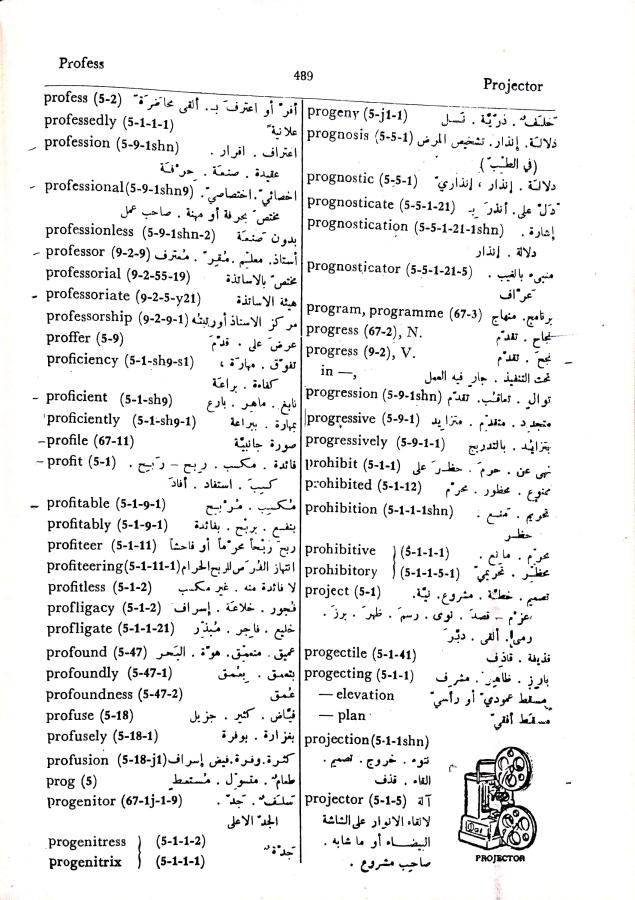 Profess
489
Projector
profess (5-2) أقرّ أو اعترف بـ. ألقى محاضرة
professedly (5-1-1-1) علانية
profession (5-9-1shn) اعتراف . اقرار .
عقيدة . صنعة . حرفة
professional(5-9-1shn9) اخصائيّ. اختصاصيّ.
مختصّ بحرفة أو مهنة . صاحب عمل
professionless (5-9-1shn-2) بدون صنعة
professor (9-2-9) أستاذ. معلّم . مُقِرّ . معترف
professorial (9-2-55-19) مختصّ بالاساتذة
professoriate (9-2-5-y21) هيئة الاساتذة
professorship (9-2-9-1) مركز الاستاذ أو رتبته
proffer (5-9) عرض على . قدّم
proficiency (5-1-sh9-s1) تفوّق . مهارة ،
كفاءة . براعة
proficient (5-1-sh9) نابغ . ماهر . بارع
proficiently (5-1-sh9-1) بمهارة . ببراعة
profile (67-11) صورة جانبيّة
profit (5-1) فائدة . مكسب . ربح – رَبِح .
كسِبَ . استفاد . أفادَ
profitable (5-1-9-1) مُكسِب . مُربِح
profitably (5-1-9-1) بنفع . بربح . بفائدة
profiteer (5-1-11) ربح رِبْحاً محرّماً أو فاحشاً
profiteering(5-1-11-1) انتهاز الفُرَص للربح الحرام
profitless (5-1-2) لا فائدة منه . غير مكسب
profligacy (5-1-2) فجور . خلاعة . إسراف
profligate (5-1-1-21) خليع . فاجر . مُبذّر
profound (5-47) عميق. متعمّق. هوّة . البَحر
profoundly (5-47-1) بتعمق . بِعُمق
profoundness (5-47-2) عُمق
profuse (5-18) فيّاض . كثير . جزيل
profusely (5-18-1) بغزارة . بوفرة
profusion (5-18-j1) كثرة.وفرة.فيض.إسراف
prog (5) طعام . متسوّل . مُستعطٍ
progenitor (67-1j-1-9) سَلَف . جَدّ .
الجدّ الاعلى
progenitress } (5-1-1-2)
progenitrix } (5-1-1-1) جَدّة
progeny (5-j1-1) خَلَف . ذريّة . نَسل
prognosis (5-5-1) دلالة. إنذار. تشخيص المرض
(في الطبّ)
prognostic (5-5-1) دلالة . إنذار ، إنذاريّ
prognosticate (5-5-1-21) دَلّ على. أنذر بـ
prognostication (5-5-1-21-1shn) إشارة .
دلالة . إنذار
prognosticator (5-5-1-21-5) منبىء بالغيب .
عرّاف
program, programme (67-3) برنامج. منهاج
progress (67-2), N. نجاح . تقدّم
progress (9-2), V. نجحَ . تقدّم
in —, تحت التنفيذ . جار فيه العمل
progression (5-9-1shn) توالٍ . تعاقُب. تقدّم
progressive (5-9-1) متجدد . متقدّم . متزايد
progressively (5-9-1-1) بتزايد . بالتدريج
prohibit (5-1-1) نهى عن . حرم . حظر على
prohibited (5-1-12) ممنوع . محظور . محرّم
prohibition (5-1-1-1shn) تحريم . منع .
حظر
prohibitive } (5-1-1-1) محرّم . مانع .
prohibitory } (5-1-1-5-1) محظّر . تحريميّ
project (5-1) تصميم . خطّة . مشروع. نيّة.
عزم – قصدَ . نوى . رسمَ . ظهرَ . برزَ .
رمى. ألقى . دبّر
progectile (5-1-41) قذيفة . قاذف
progecting (5-1-1) بارز . ظاهر . مشرف
— elevation مسقط عموديّ أو رأسيّ
— plan مسقط أفقيّ
projection(5-1-1shn)
نتوء . خروج . تصميم .
القاء . قذف
projector (5-1-5) آلة
لالقاء الانوار على الشاشة
البيضاء أو ما شابه .
صاحب مشروع .
PROJECTOR